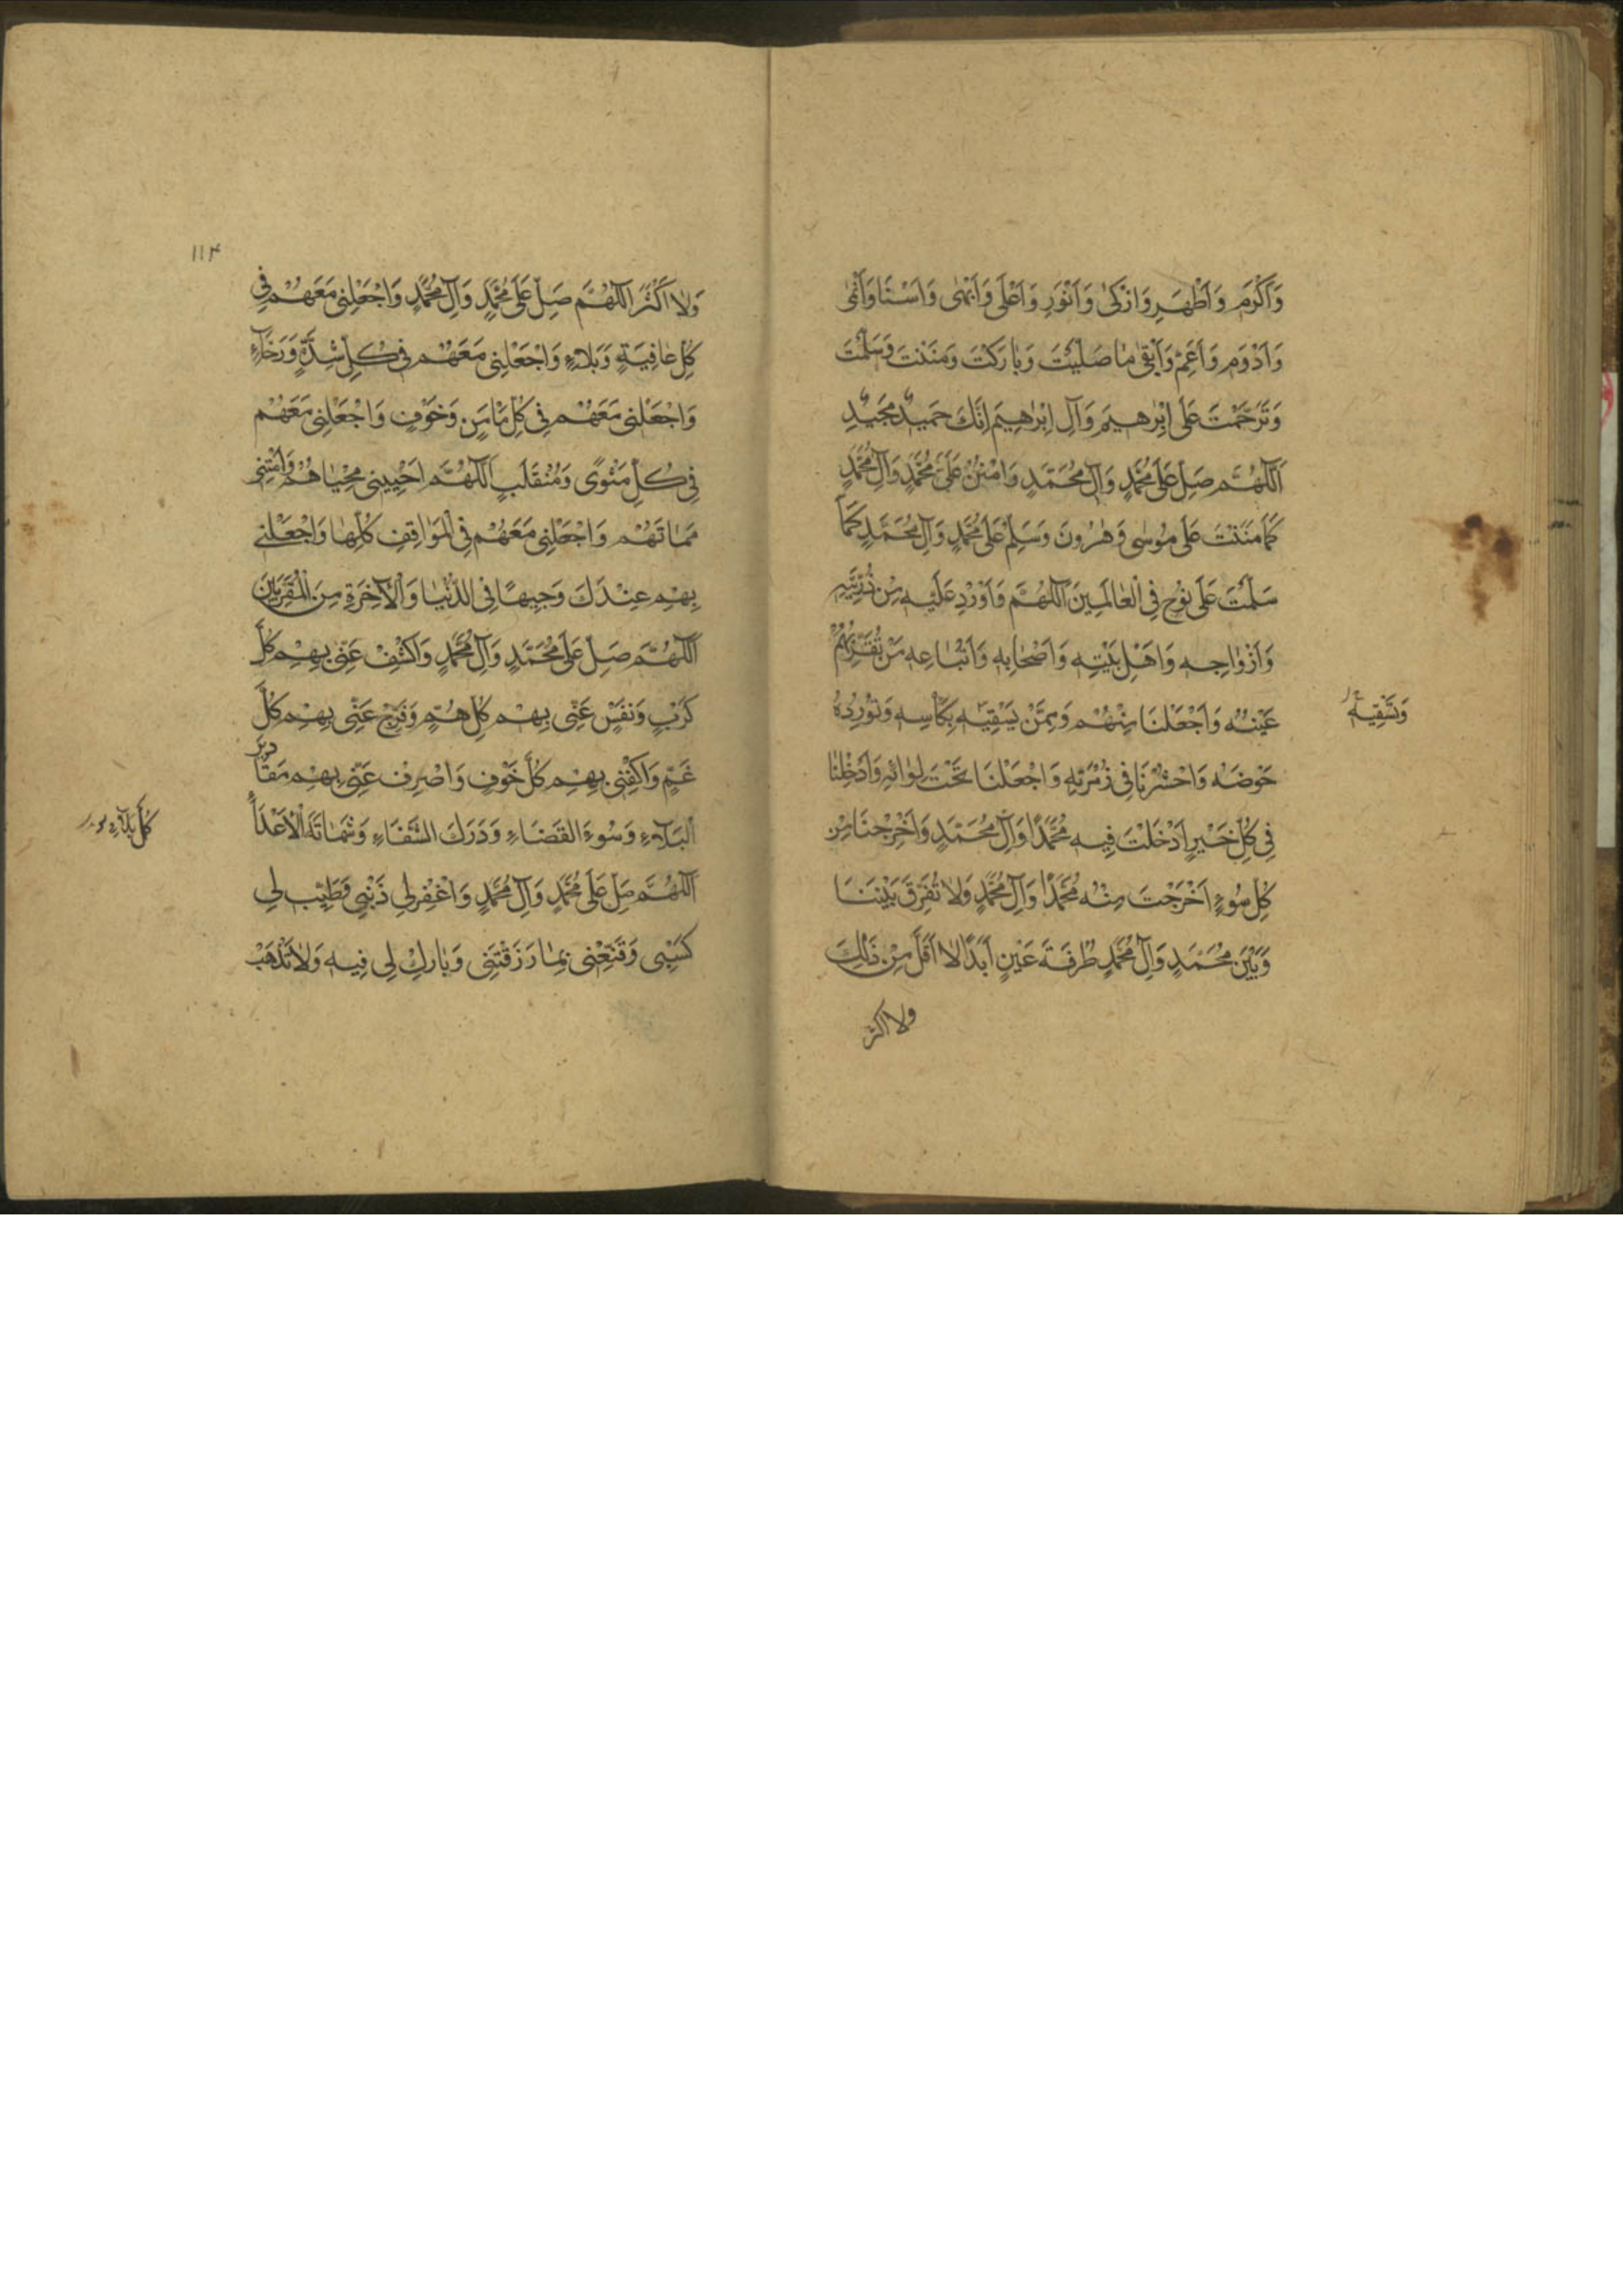 وَاَكْرَمِ وَاَطْهَرِ وَازْكىٰ وَاَنْوَرِ وَاَعْلىٰ وَاَبْهىٰ وَاَسْنَا وَاَنْمىٰ
وَاَدْوَمِ وَاَعَمِّ وَاَبْقىٰ مٰا صَلَّيْتَ وَبٰارَكْتَ وَمَنَنْتَ وَسَلَّمْتَ
وَتَرَحَّمْتَ عَلىٰ اِبْرٰهيمَ وَآلِ اِبْرٰهِيمَ اِنَّكَ حَميدٌ مَجيدٌ
اَللّٰهُمَّ صَلِّ عَلىٰ مُحَمَّدٍ وَآلِ مُحَمَّدٍ وَامْنُنْ عَلىٰ مُحَمَّدٍ وَآلِ مُحَمَّدٍ
كَمٰا مَنَنْتَ عَلىٰ مُوسٰى وَهٰرُونَ وَسَلِّمْ عَلىٰ مُحَمَّدٍ وَآلِ مُحَمَّدٍ كَمٰا
سَلَّمْتَ عَلىٰ نُوحٍ فِي الْعٰالَمِينَ اَللّٰهُمَّ وَاَوْرِدْ عَلَيْهِ مِنْ ذُرِّيَّتِهِ
وَاَزْوٰاجِهِ وَاَهْلِ بَيْتِهِ وَاَصْحٰابِهِ وَاَتْبٰاعِهِ مَنْ تُقِرُّ بِهِمْ
عَيْنَهُ وَاجْعَلْنَا مِنْهُمْ وَمِمَّنْ يَسْقِيَهُ بِكَأْسِهِ وَتُورِدُهُ
وَتَسْقِيَهُ
حَوْضَهُ وَاحْشُرْنَا فِي زُمْرَتِهِ وَاجْعَلْنَا تَحْتَ لِوٰائِهِ وَاَدْخِلْنٰا
فِي كُلِّ خَيْرٍ اَدْخَلْتَ فِيهِ مُحَمَّدًا وَآلَ مُحَمَّدٍ وَاَخْرِجْنَا مِنْ
كُلِّ سُوءٍ اَخْرَجْتَ مِنْهُ مُحَمَّدًا وَآلَ مُحَمَّدٍ وَلاٰ تُفَرِّقْ بَيْنَنَا
وَبَيْنَ مُحَمَّدٍ وَآلِ مُحَمَّدٍ طَرْفَةَ عَيْنٍ اَبَدًا لاٰ اَقَلَّ مِنْ ذٰلِكَ
ولا اكثر
۱۱۴
وَلاٰ اَكْثَرَ اَللّٰهُمَّ صَلِّ عَلىٰ مُحَمَّدٍ وَآلِ مُحَمَّدٍ وَاجْعَلْنِي مَعَهُمْ فِي
كُلِّ عٰافِيَةٍ وَبَلاٰءٍ وَاجْعَلْنِي مَعَهُمْ فِي كُلِّ شِدَّةٍ وَرَخٰآءٍ
وَاجْعَلْنِي مَعَهُمْ فِي كُلِّ مٰامَنٍ وَخَوْفٍ وَاجْعَلْنِي مَعَهُمْ
فِي كُلِّ مَثْوًى وَمُنْقَلَبٍ اَللّٰهُمَّ اَحْيِينِي مَحْيٰاهُمْ وَاَمِتْنِي
مَمٰاتَهُمْ وَاجْعَلْنِي مَعَهُمْ فِي الْمَوٰاقِفِ كُلِّهٰا وَاجْعَلْنِي
بِهِمْ عِنْدَكَ وَجِيهًا فِي الدُّنْيٰا وَالْآخِرَةِ مِنَ الْمُقَرَّبِينَ
اَللّٰهُمَّ صَلِّ عَلىٰ مُحَمَّدٍ وَآلِ مُحَمَّدٍ وَاكْشِفْ عَنِّي بِهِمْ كُلَّ
كَرْبٍ وَنَفِّسْ عَنِّي بِهِمْ كُلَّ هَمٍّ وَفَرِّجْ عَنِّي بِهِمْ كُلَّ
غَمٍّ وَاكْفِنِي بِهِمْ كُلَّ خَوْفٍ وَاصْرِفْ عَنِّي بِهِمْ مَقٰادِيرَ
كُلَّ بَلآءٍ
اَلْبَلآءِ وَسُوءَ الْقَضٰاءِ وَدَرَكَ الشَّقٰاءِ وَشَمٰاتَةَ الْاَعْدٰاءِ
اَللّٰهُمَّ صَلِّ عَلىٰ مُحَمَّدٍ وَآلِ مُحَمَّدٍ وَاغْفِرْ لِي ذَنْبِي وَطَيِّبْ لِي
كَسْبِي وَقَنِّعْنِي بِمٰا رَزَقْتَنِي وَبٰارِكْ لِي فِيهِ وَلاٰ تَذْهَبْ